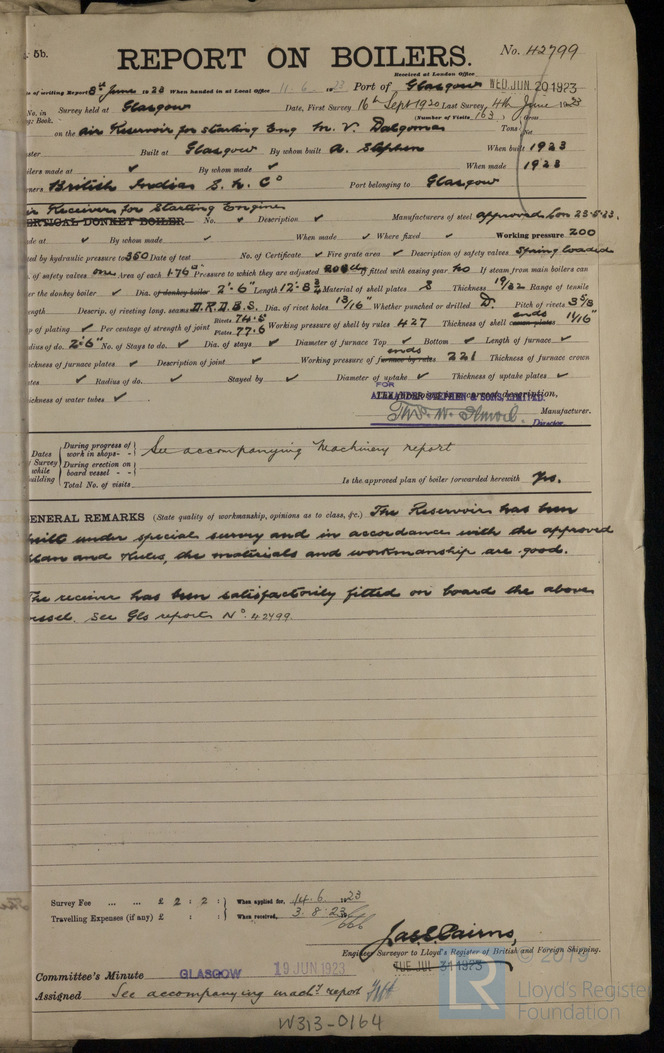 5b.
REPORT ON BOILERS.
No. 42799
Received at London Office
WED. JUN 20 1923
of writing Report 8th June 1923 When handed in at Local Office 11.6.1923 Port of Glasgow
No. in Survey held at Glasgow Date, First Survey 16th Sept 1920 Last Survey 4th June 1923
Book. (Number of Visits 163) Gross
on the Air Reservoir for starting Eng M. V. Dalgoma Tons Net
Built at Glasgow By whom built A. Stephen When built 1923
made at ✓ By whom made ✓ When made 1923
British India S. N. Co Port belonging to Glasgow
Air Receivers for Starting Engines
VERTICAL DONKEY BOILER No. ✓ Description ✓ Manufacturers of steel approved Lon 23.5.23.
made at ✓ By whom made ✓ When made ✓ Where fixed ✓ Working pressure 200
by hydraulic pressure to 350 Date of test No. of Certificate ✓ Fire grate area ✓ Description of safety valves Spring loaded
of safety valves one Area of each 1.76" Pressure to which they are adjusted fitted with easing gear no If steam from main boilers can
the donkey boiler ✓ Dia. of donkey boiler 2'-6" Length 12'-8 3/4 Material of shell plates S Thickness 19/32 Range of tensile
Descrip. of riveting long. seams D.R.D.B.S. Dia. of rivet holes 13/16" Whether punched or drilled D. Pitch of rivets 3 5/8
of plating ✓ Per centage of strength of joint Rivets 74.5 Plates 77.6 Working pressure of shell by rules 427 Thickness of shell ends 11/16"
of do. 2'-6" No. of Stays to do. ✓ Dia. of stays ✓ Diameter of furnace Top ✓ Bottom ✓ Length of furnace ✓
thickness of furnace plates ✓ Description of joint ✓ Working pressure of ends furnace by rules 221 Thickness of furnace crown
plates ✓ Radius of do. ✓ Stayed by ✓ Diameter of uptake ✓ Thickness of uptake plates ✓
thickness of water tubes ✓
FOR
ALEXANDER STEPHEN & SONS LIMITED.
description,
Manufacturer.
Director.
Dates of Survey while building
During progress of work in shops - -
During erection on board vessel - -
Total No. of visits
See accompanying Machinery report
Is the approved plan of boiler forwarded herewith Yes.
GENERAL REMARKS (State quality of workmanship, opinions as to class, &c.) The Reservoir has been
built under special survey and in accordance with the approved
plan and Rules, the materials and workmanship are good.
The receiver has been satisfactorily fitted on board the above
vessel. See Gls reports No. 42799.
Survey Fee ... ... £ 2 : 2 : When applied for, 14.6.1923
Travelling Expenses (if any) £ : : When received, 3.8.23
Jas. Cairns,
Engineer Surveyor to Lloyd's Register of British and Foreign Shipping.
TUE. JUL 31 1923
Committee's Minute GLASGOW 19 JUN 1923
Assigned See accompanying machy report
W313-0164
© 2019
LR
Lloyd's Register
Foundation